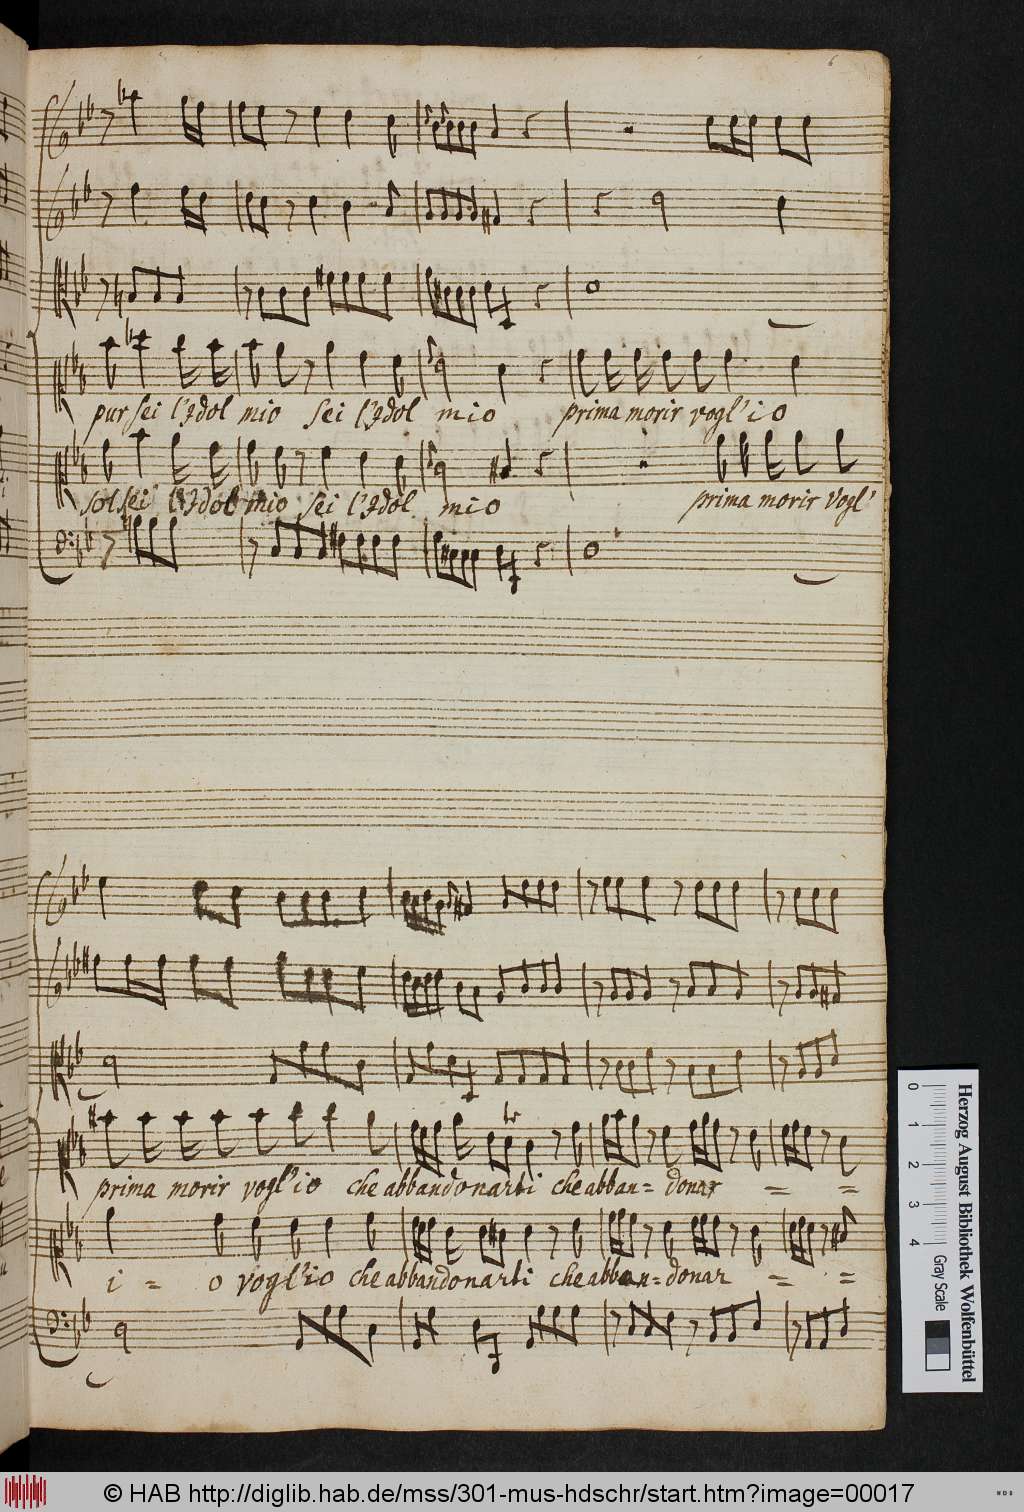 6
pur sei l'Idol mio sei l'Idol mio prima morir vogl'io
sol sei l'Idol mio sei l'Idol mio prima morir vogl'
prima morir vogl'io che abbandonarti che abban= donar = =
i = o vogl'io che abbandonarti che abban= donar = =
0 1 2 3 4
Gray Scale
Herzog August Bibliothek Wolfenbüttel
© HAB http://diglib.hab.de/mss/301-mus-hdschr/start.htm?image=00017